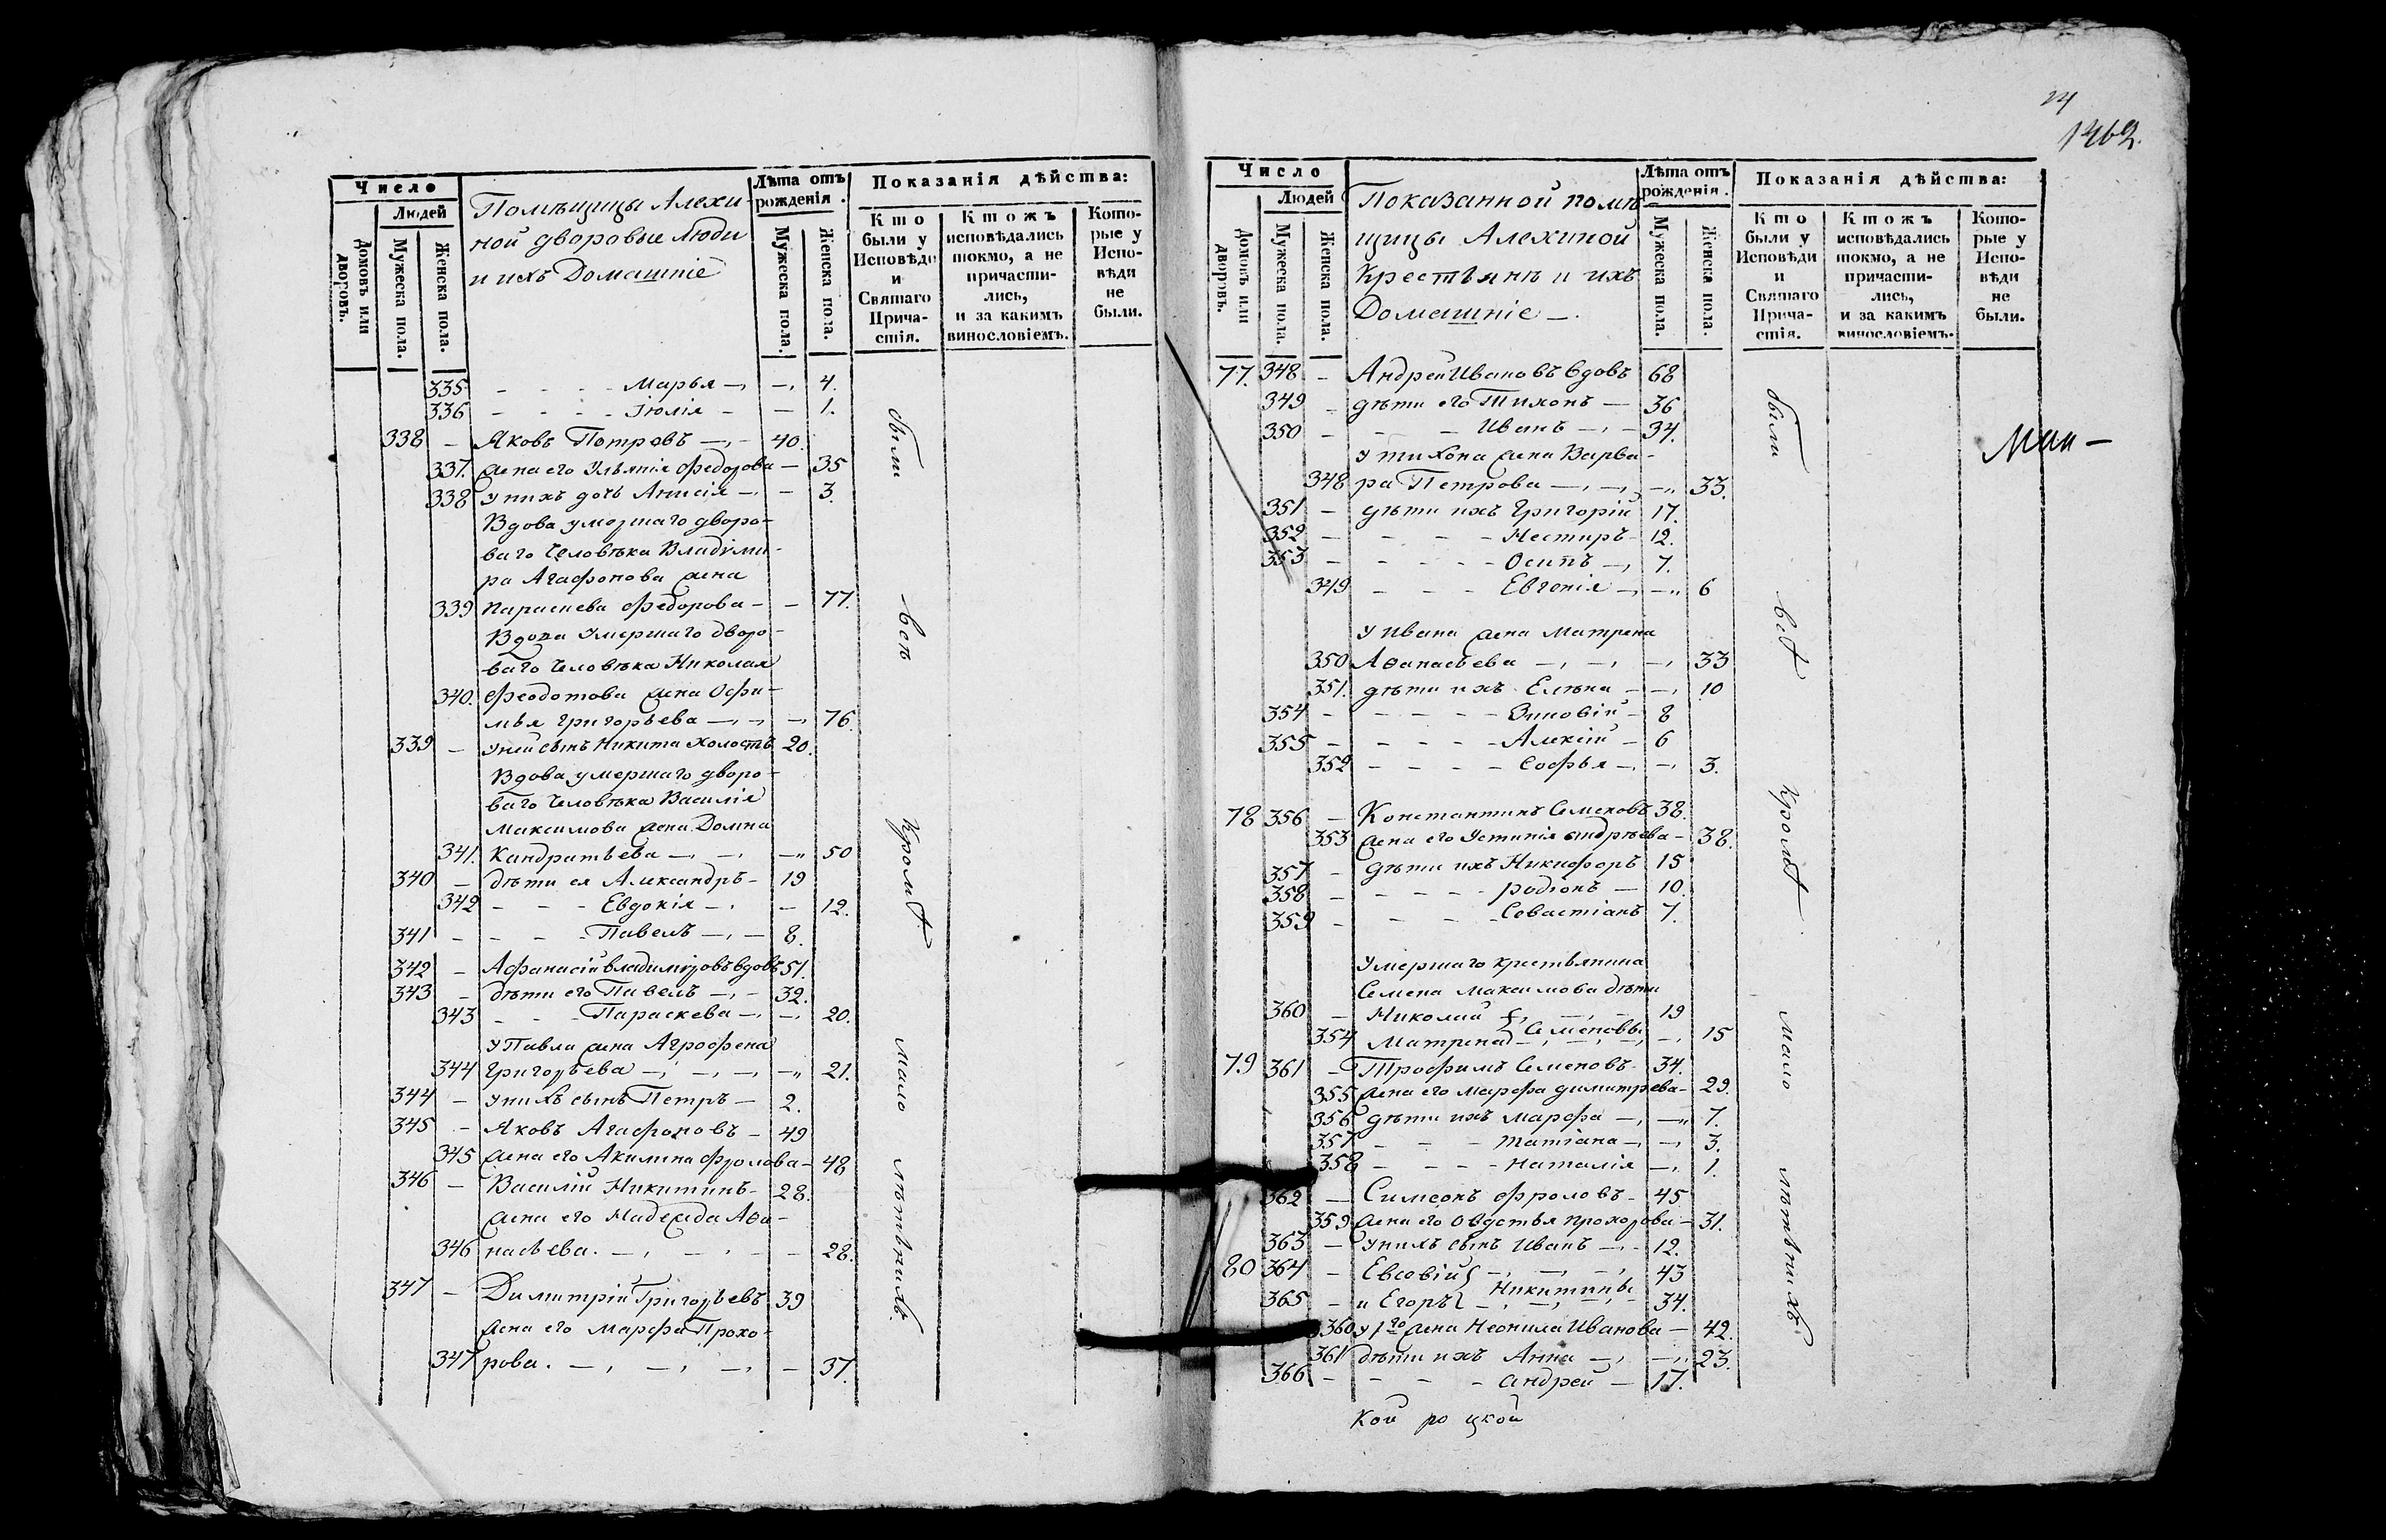 Число
Людей
Домовъ или дворовъ.
Мужеска пола.
Женска пола.
Помѣщицы Алехи-
ной дворовые люди
и ихъ Домашніе
Лѣта отъ рожденія.
Мужеска пола.
Женска пола.
Показанія дѣйства:
Кто были у Исповѣди и Святаго Прича-стія.
Ктожъ исповѣдались токмо, а не причасти-лись, и за какимъ винословіемъ.
Кото-рые у Испо-вѣди не были.
335 - - - Марья -, -, 4.
336 - - - Іюлія - - 1.
338 - Яковъ Петровъ -, - 40.
337. жена его Ульянія Федорова - 35
338 у нихъ дочь Анисія -, - 3.
Вдова умершаго дворо-
ваго человѣка Владими-
ра Агафонова жена
339 Параскева Федорова - - 77.
Вдова умершаго дворо-
ваго человѣка Николая
340. Феодотова жена Офи-
мья Григорьева -, -, -, 76.
339 - у ней сынъ Никита холостъ 20.
Вдова умершаго дворо-
ваго человѣка Василія
Максимова жена Домна
341. Кандратьева -, -, -,, 50
340 - дѣти ея Александръ - 19
342 - - - Евдокія -, - 12.
341 - - - Павелъ -, - 8.
342 - Афанасій Владиміровъ вдовъ 51.
343 - дѣти его Павелъ -, - 32.
343 - - - Параскева -, -, 20.
у Павла жена Агрофена
344 Григорьева -, -, -, -,, 21.
344 - у нихъ сынъ Петръ - 2.
345 - Яковъ Агафоновъ - 49
345 жена его Акилина Фролова - 48
346 - Василій Никитинъ - 28.
жена его Надежда Аѳа-
346 насьева. -, - , - - 28.
347 - Димитрій Григорьевъ 39
жена его Марфа Прохо-
347 рова. -, -, -, - 37.
были всѣ кромѣ мало лѣтнихъ.
24
1462.
Число
Людей
Домовъ или дворовъ.
Мужеска пола.
Женска пола.
Показанной помѣ-
щицы Алехиной
Крестьянѣ и ихъ
Домашніе -.
Лѣта отъ рожденія.
Мужеска пола.
Женска пола.
Показанія дѣйства:
Кто были у Исповѣди и Святаго Прича-стія.
Ктожъ исповѣдались токмо, а не причасти-лись, и за какимъ винословіемъ.
Кото-рые у Испо-вѣди не были.
77. 348 - Андрей Ивановъ вдовъ 68
349 - дѣти его Тихонъ - 36
350 - - - Иванъ -, - 34.
у Тихона жена Варва-
348 ра Петрова -, -, -,, 33.
351 - дѣти ихъ Григорій 17.
352 - - - - Нестиръ - 12.
353 - - - - Осипъ -, 7.
349 - - - Евгенія -, -,, 6
у Ивана жена Матрена
350 Аѳанасьева -, -, -, 33
351. дѣти ихъ Елѣна - -, 10
354 - - - - Зиновій - 8
355 - - - - Алексій - 6
352 - - - - Софья -, -, 3.
78 356 - Константинъ Семеновъ 38.
353 жена его Устинія Андрѣева - 38.
357 - дѣти ихъ Никифоръ 15
358 - - - - Родіонъ - 10.
359 - - - - Севастіанъ 7.
Умершаго крестьянина
Семена Максимова дѣти
360 - Николай -, -, - 19
Семеновы
354 Матрена -, -, -, -, 15
79 361 - Трофимъ Семеновъ - 34.
355 жена его Марфа Димитрева - 29.
356 дѣти ихъ Марфа -, -,, 7.
357 - - - Татіана -, -, 3.
358 - - - Наталія -, 1.
362 - Симеонъ Фроловъ - 45
359 жена его Овдотья Прохорова - 31.
363 - у нихъ сынъ Иванъ -, - 12.
80 364 - Евсевій -, -, -, 43
Никитины
365 - и Егоръ -, -, -, - 34.
360 у 1го жена Неонила Иванова - 42.
361 дѣти ихъ Анна -, -,, 23.
366 - - - - Андрей - 17.
были всѣ кромѣ мало лѣтнихъ.
кой ро цкой